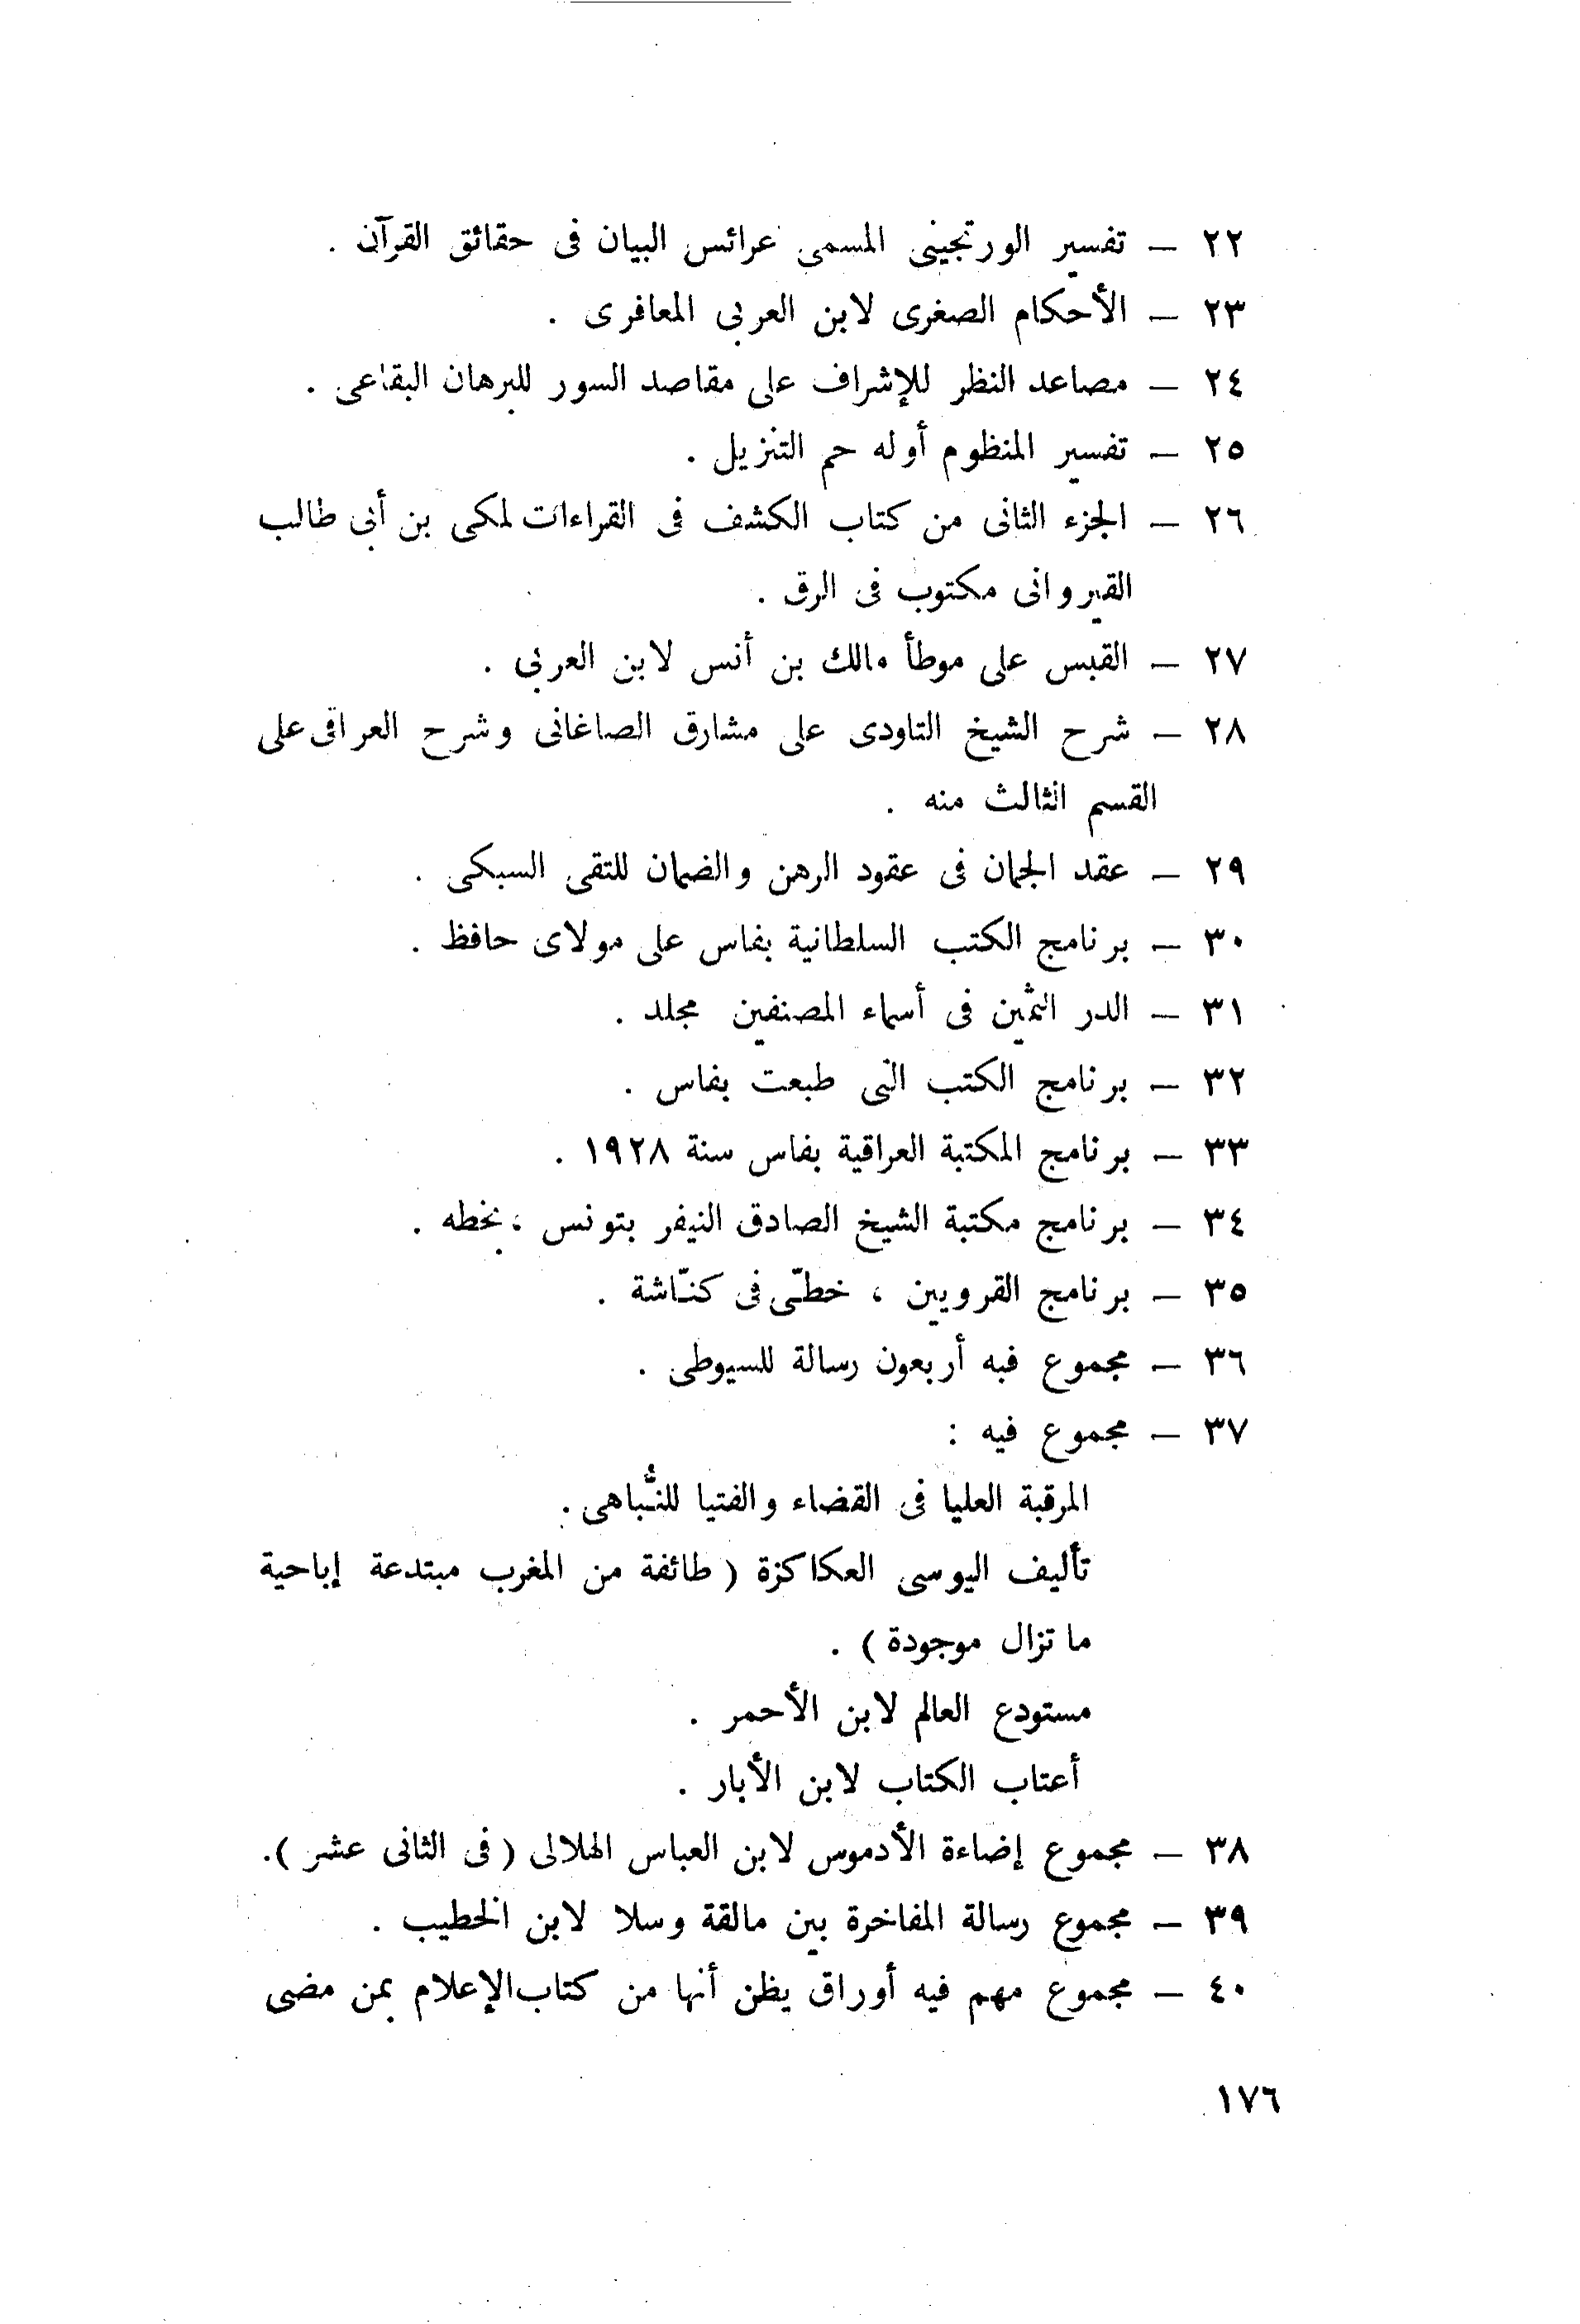 ٢٢ — تفسير الورتجينى المسمى عرائس البيان فى حقائق القرآن .
٢٣ — الأحكام الصغرى لابن العربى المعافرى .
٢٤ — مصاعد النظر للإشراف على مقاصد السور للبرهان البقاعى .
٢٥ — تفسير المنظوم أوله حم التنزيل .
٢٦ — الجزء الثانى من كتاب الكشف فى القراءات لمكى بن أبى طالب
القيروانى مكتوب فى الرق .
٢٧ — القبس على موطأ مالك بن أنس لابن العربى .
٢٨ — شرح الشيخ التاودى على مشارق الصاغانى وشرح العراقى على
القسم الثالث منه .
٢٩ — عقد الجمان فى عقود الرهن والضمان للتقى السبكى .
٣٠ — برنامج الكتب السلطانية بفاس على مولاى حافظ .
٣١ — الدر الثمين فى أسماء المصنفين مجلد .
٣٢ — برنامج الكتب التى طبعت بفاس .
٣٣ — برنامج المكتبة العراقية بفاس سنة ١٩٢٨ .
٣٤ — برنامج مكتبة الشيخ الصادق النيفر بتونس ، بخطه .
٣٥ — برنامج القرويين ، خطّى فى كنّاشة .
٣٦ — مجموع فيه أربعون رسالة للسيوطى .
٣٧ — مجموع فيه :
المرقبة العليا فى القضاء والفتيا للنُّباهى .
تأليف اليوسى العكاكزة ( طائفة من المغرب مبتدعة إباحية
ما تزال موجودة ) .
مستودع العالم لابن الأحمر .
أعتاب الكتاب لابن الأبار .
٣٨ — مجموع إضاءة الأدموس لابن العباس الهلالى ( فى الثانى عشر ) .
٣٩ — مجموع رسالة المفاخرة بين مالقة وسلا لابن الخطيب .
٤٠ — مجموع مهم فيه أوراق يظن أنها من كتاب الإعلام بمن مضى
١٧٦